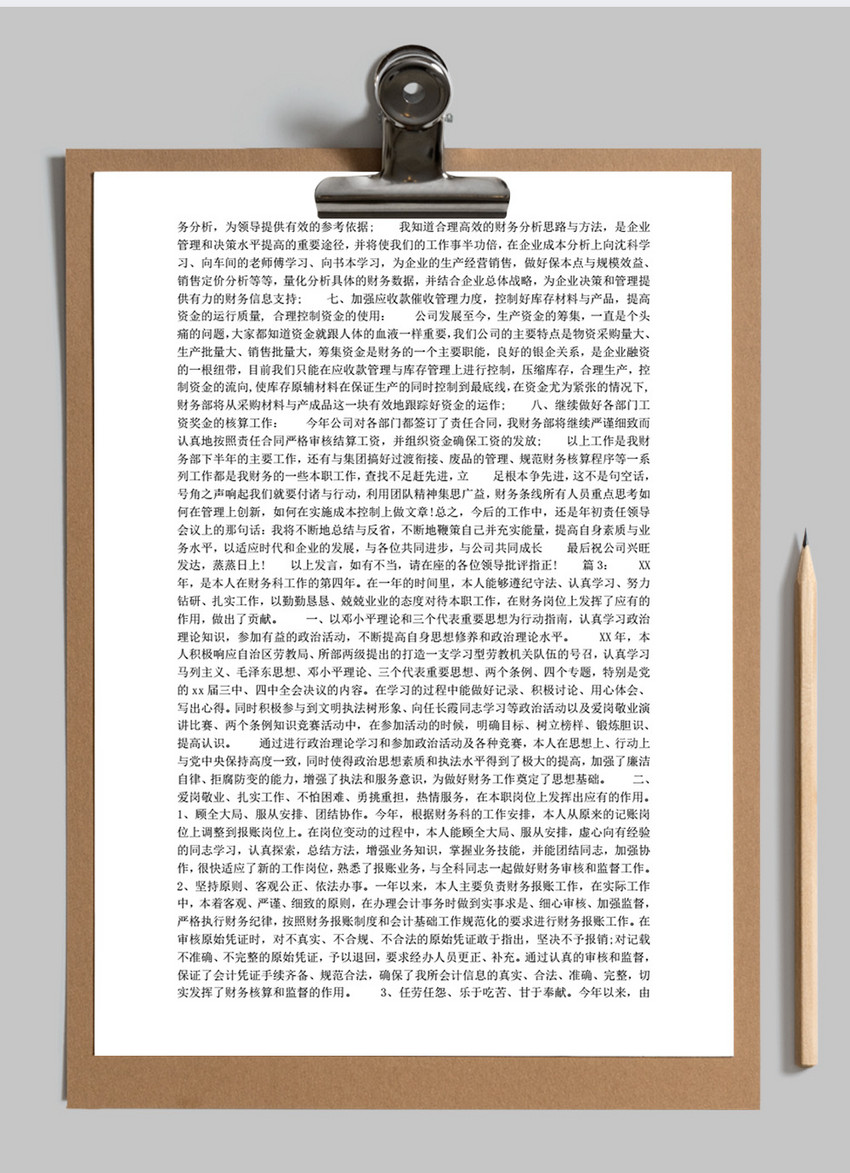 务分析，为领导提供有效的参考依据;　　我知道合理高效的财务分析思路与方法，是企业
管理和决策水平提高的重要途径，并将使我们的工作事半功倍，在企业成本分析上向沈科学
习、向车间的老师傅学习、向书本学习，为企业的生产经营销售，做好保本点与规模效益、
销售定价分析等等，量化分析具体的财务数据，并结合企业总体战略，为企业决策和管理提
供有力的财务信息支持;　　七、加强应收款催收管理力度，控制好库存材料与产品，提高
资金的运行质量, 合理控制资金的使用：　　公司发展至今，生产资金的筹集，一直是个头
痛的问题,大家都知道资金就跟人体的血液一样重要,我们公司的主要特点是物资采购量大、
生产批量大、销售批量大，筹集资金是财务的一个主要职能，良好的银企关系，是企业融资
的一根纽带，目前我们只能在应收款管理与库存管理上进行控制，压缩库存，合理生产，控
制资金的流向,使库存原辅材料在保证生产的同时控制到最底线,在资金尤为紧张的情况下,
财务部将从采购材料与产成品这一块有效地跟踪好资金的运作;　　八、继续做好各部门工
资奖金的核算工作：　　今年公司对各部门都签订了责任合同，我财务部将继续严谨细致而
认真地按照责任合同严格审核结算工资，并组织资金确保工资的发放;　　以上工作是我财
务部下半年的主要工作，还有与集团搞好过渡衔接、废品的管理、规范财务核算程序等一系
列工作都是我财务的一些本职工作，查找不足赶先进，立　　足根本争先进，这不是句空话，
号角之声响起我们就要付诸与行动，利用团队精神集思广益，财务条线所有人员重点思考如
何在管理上创新，如何在实施成本控制上做文章!总之，今后的工作中，还是年初责任领导
会议上的那句话：我将不断地总结与反省，不断地鞭策自己并充实能量，提高自身素质与业
务水平，以适应时代和企业的发展，与各位共同进步，与公司共同成长　　最后祝公司兴旺
发达，蒸蒸日上!　　以上发言，如有不当，请在座的各位领导批评指正!　　篇 3：　　XX
年，是本人在财务科工作的第四年。在一年的时间里，本人能够遵纪守法、认真学习、努力
钻研、扎实工作，以勤勤恳恳、兢兢业业的态度对待本职工作，在财务岗位上发挥了应有的
作用，做出了贡献。　　一、以邓小平理论和三个代表重要思想为行动指南，认真学习政治
理论知识，参加有益的政治活动，不断提高自身思想修养和政治理论水平。　　XX 年，本
人积极响应自治区劳教局、所部两级提出的打造一支学习型劳教机关队伍的号召，认真学习
马列主义、毛泽东思想、邓小平理论、三个代表重要思想、两个条例、四个专题，特别是党
的 xx 届三中、四中全会决议的内容。在学习的过程中能做好记录、积极讨论、用心体会、
写出心得。同时积极参与到文明执法树形象、向任长霞同志学习等政治活动以及爱岗敬业演
讲比赛、两个条例知识竞赛活动中，在参加活动的时候，明确目标、树立榜样、锻炼胆识、
提高认识。　　通过进行政治理论学习和参加政治活动及各种竞赛，本人在思想上、行动上
与党中央保持高度一致，同时使得政治思想素质和执法水平得到了极大的提高，加强了廉洁
自律、拒腐防变的能力，增强了执法和服务意识，为做好财务工作奠定了思想基础。　　二、
爱岗敬业、扎实工作、不怕困难、勇挑重担，热情服务，在本职岗位上发挥出应有的作用。
1、顾全大局、服从安排、团结协作。今年，根据财务科的工作安排，本人从原来的记账岗
位上调整到报账岗位上。在岗位变动的过程中，本人能顾全大局、服从安排，虚心向有经验
的同志学习，认真探索，总结方法，增强业务知识，掌握业务技能，并能团结同志，加强协
作，很快适应了新的工作岗位，熟悉了报账业务，与全科同志一起做好财务审核和监督工作。
2、坚持原则、客观公正、依法办事。一年以来，本人主要负责财务报账工作，在实际工作
中，本着客观、严谨、细致的原则，在办理会计事务时做到实事求是、细心审核、加强监督，
严格执行财务纪律，按照财务报账制度和会计基础工作规范化的要求进行财务报账工作。在
审核原始凭证时，对不真实、不合规、不合法的原始凭证敢于指出，坚决不予报销;对记载
不准确、不完整的原始凭证，予以退回，要求经办人员更正、补充。通过认真的审核和监督，
保证了会计凭证手续齐备、规范合法，确保了我所会计信息的真实、合法、准确、完整，切
实发挥了财务核算和监督的作用。　　3、任劳任怨、乐于吃苦、甘于奉献。今年以来，由